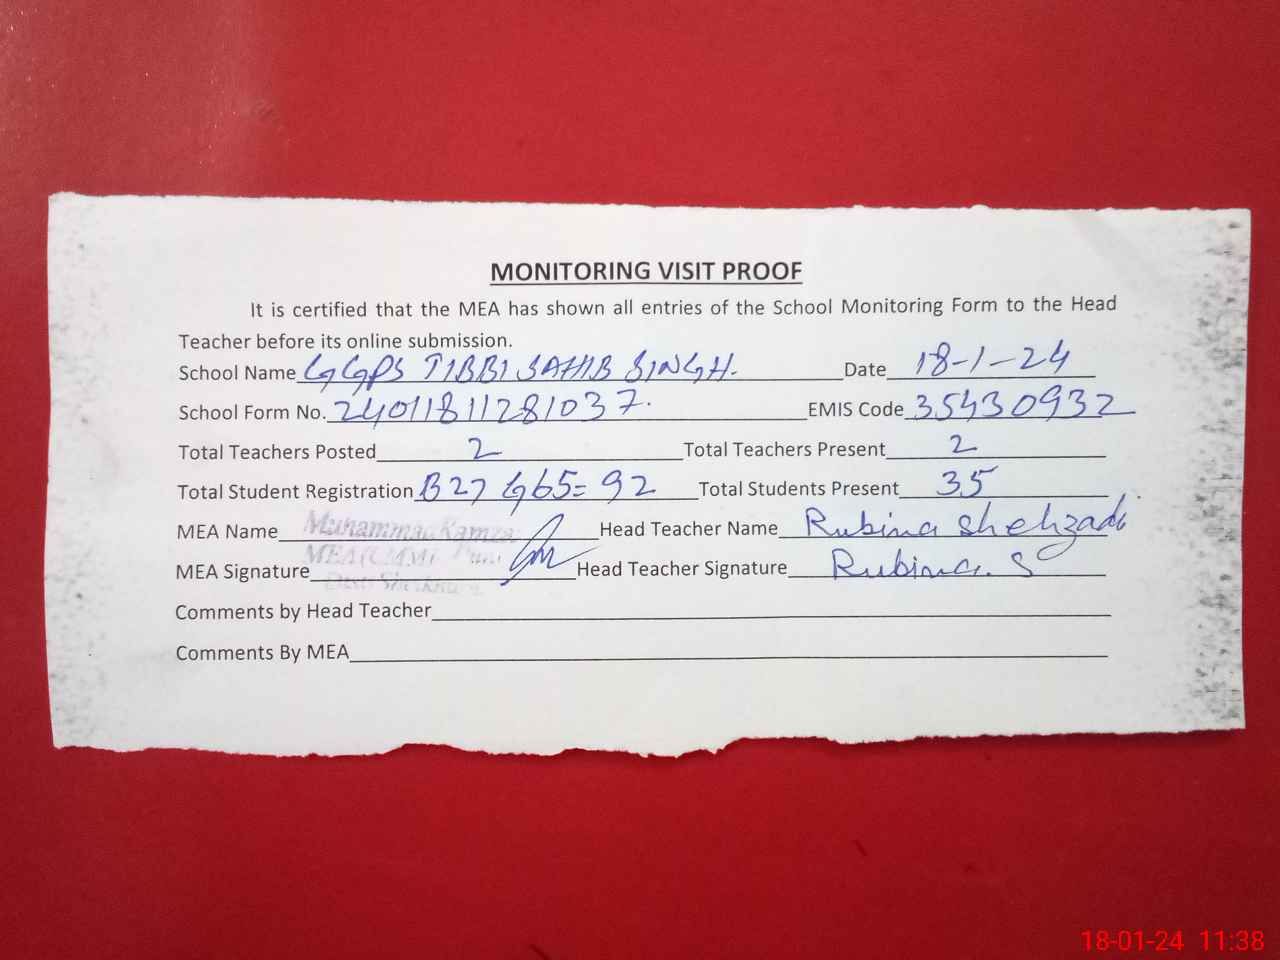 MONITORING VISIT PROOF
It is certified that the MEA has shown all entries of the School Monitoring Form to the Head
Teacher before its online submission.
School Name GGPS TIBBI SAHIB SINGH. Date 18-1-24
School Form No. 24011811281037. EMIS Code 35430932
Total Teachers Posted 2 Total Teachers Present 2
Total Student Registration B27 G65=92 Total Students Present 35
MEA Name Muhammad Head Teacher Name Rubina Shehzadi
MEA Signature Head Teacher Signature Rubina. S
Comments by Head Teacher
Comments By MEA
18-01-24 11:38